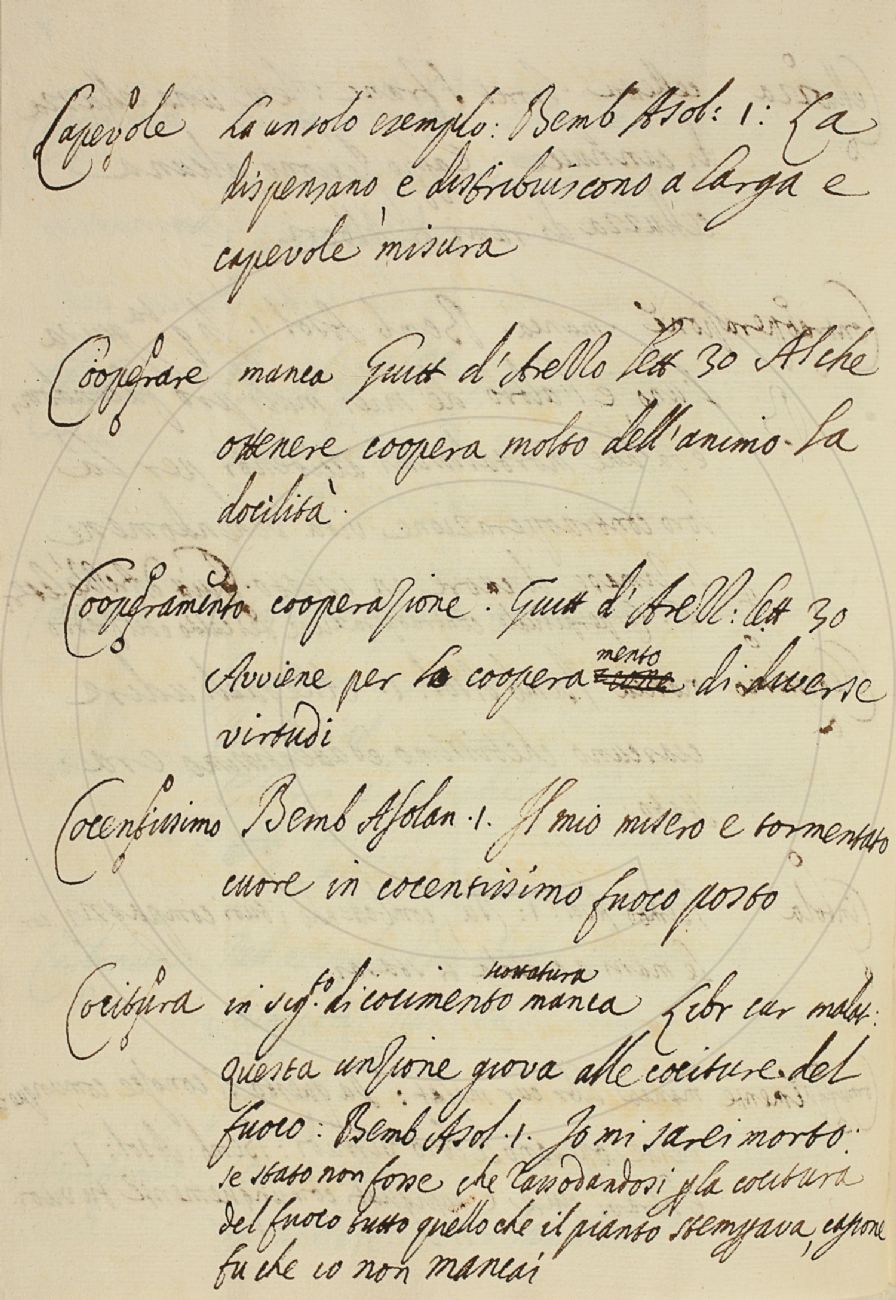 Capevole Ha un solo esemplo: Bemb Asol: 1: La
dispensano, e distribuiscono a larga e
capevole misura
Cooperare manca Guitt d'Arezzo lett 30 Al che
ottenere coopera molto dell'animo la
docilità.
Cooperamento cooperazione. Guitt d'Arezz: lett 30
mento
Avviene per lo coopera zione di diverse
virtudi
Cocentissimo Bemb Asolan. 1. Il mio misero e tormentato
cuore in cocentissimo fuoco posto
scottatura
Cocitura in sig.to di cocimento manca Libr cur malat:
questa unzione giova alle cociture del
fuoco: Bemb Asol. 1. Io mi sarei morto:
se stato non fosse che rassodandosi p la cocitura
del fuoco tutto quello che il pianto stemprava, cagione
fu che io non mancai